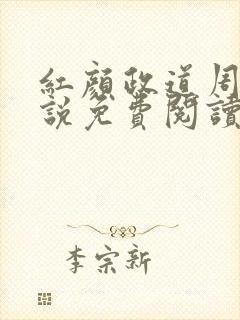 紅顏政道周
說免費閱讀
李宗新